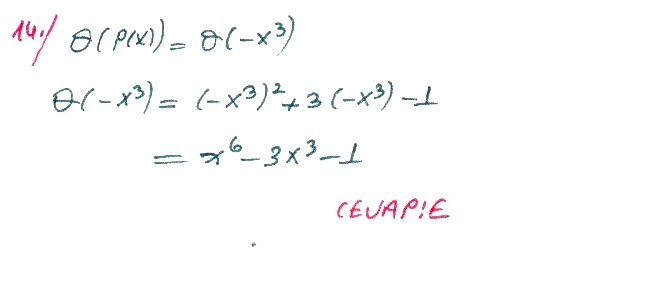 14./ Q(P(x)) = Q(-x³)
Q(-x³) = (-x³)² + 3(-x³) - 1
= x⁶ - 3x³ - 1
CEVAP:E